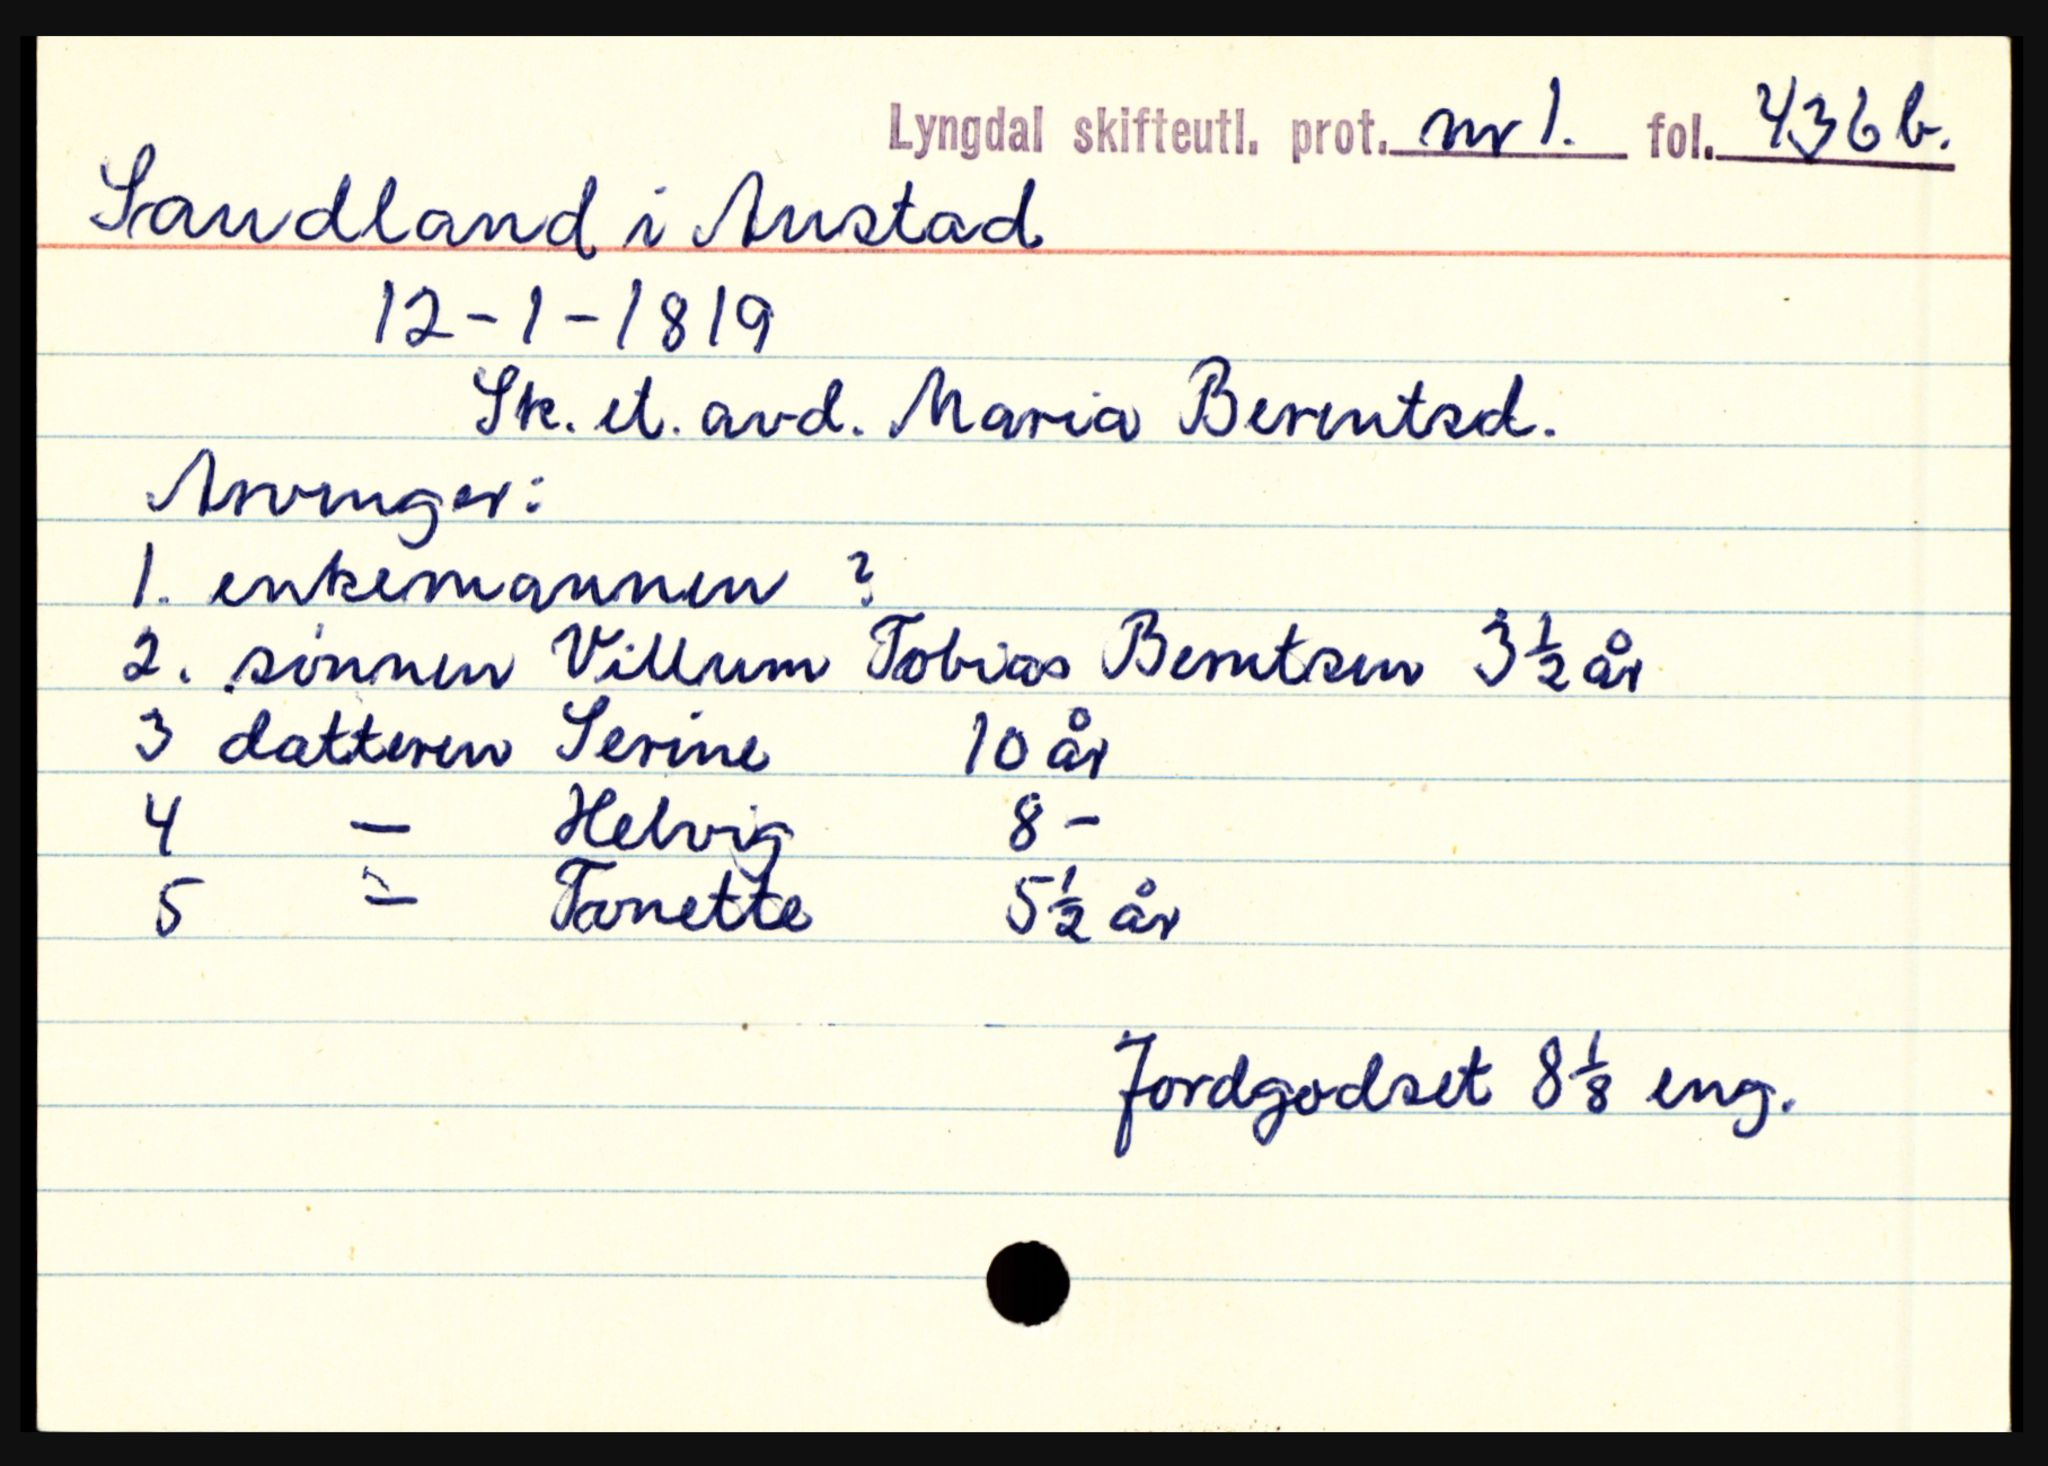 Lyngdal skifteutl. prot. nr 1. fol. 436 b.
Sandland i Austad
12-1-1819
Sk. et. avd. Maria Berentsd.
Arvinger:
1. enkemannen ?
2. sønnen Villum Tobias Berntsen 3 1/2 år
3 datteren Serine 10 år
4 — Helvig 8 -
5 — Tonette 5 1/2 år
Jordgodset 8 1/8 eng.